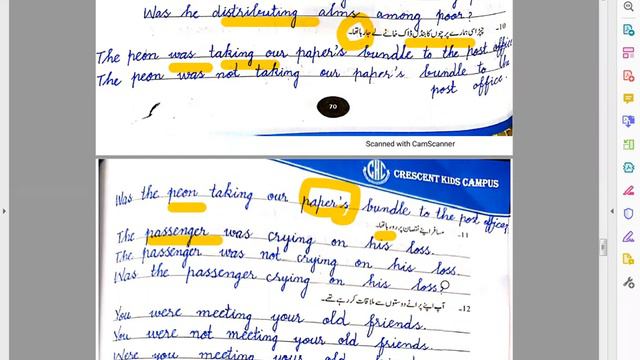 Was he distributing alms among poor?
10- چپڑاسی ہمارے پرچوں کا بنڈل ڈاک خانے لے جا رہا تھا۔
The peon was taking our paper's bundle to the post office
The peon was not taking our paper's bundle to the
post office.
70
Scanned with CamScanner
CRESCENT KIDS CAMPUS
Was the peon taking our paper's bundle to the post office
11- مسافر اپنے نقصان پر رو رہا تھا۔
The passenger was crying on his loss.
The passenger was not crying on his loss.
Was the passenger crying on his loss?
12- آپ اپنے پرانے دوستوں سے ملاقات کر رہے تھے۔
You were meeting your old friends.
You were not meeting your old friends.
Were you meeting your old friends